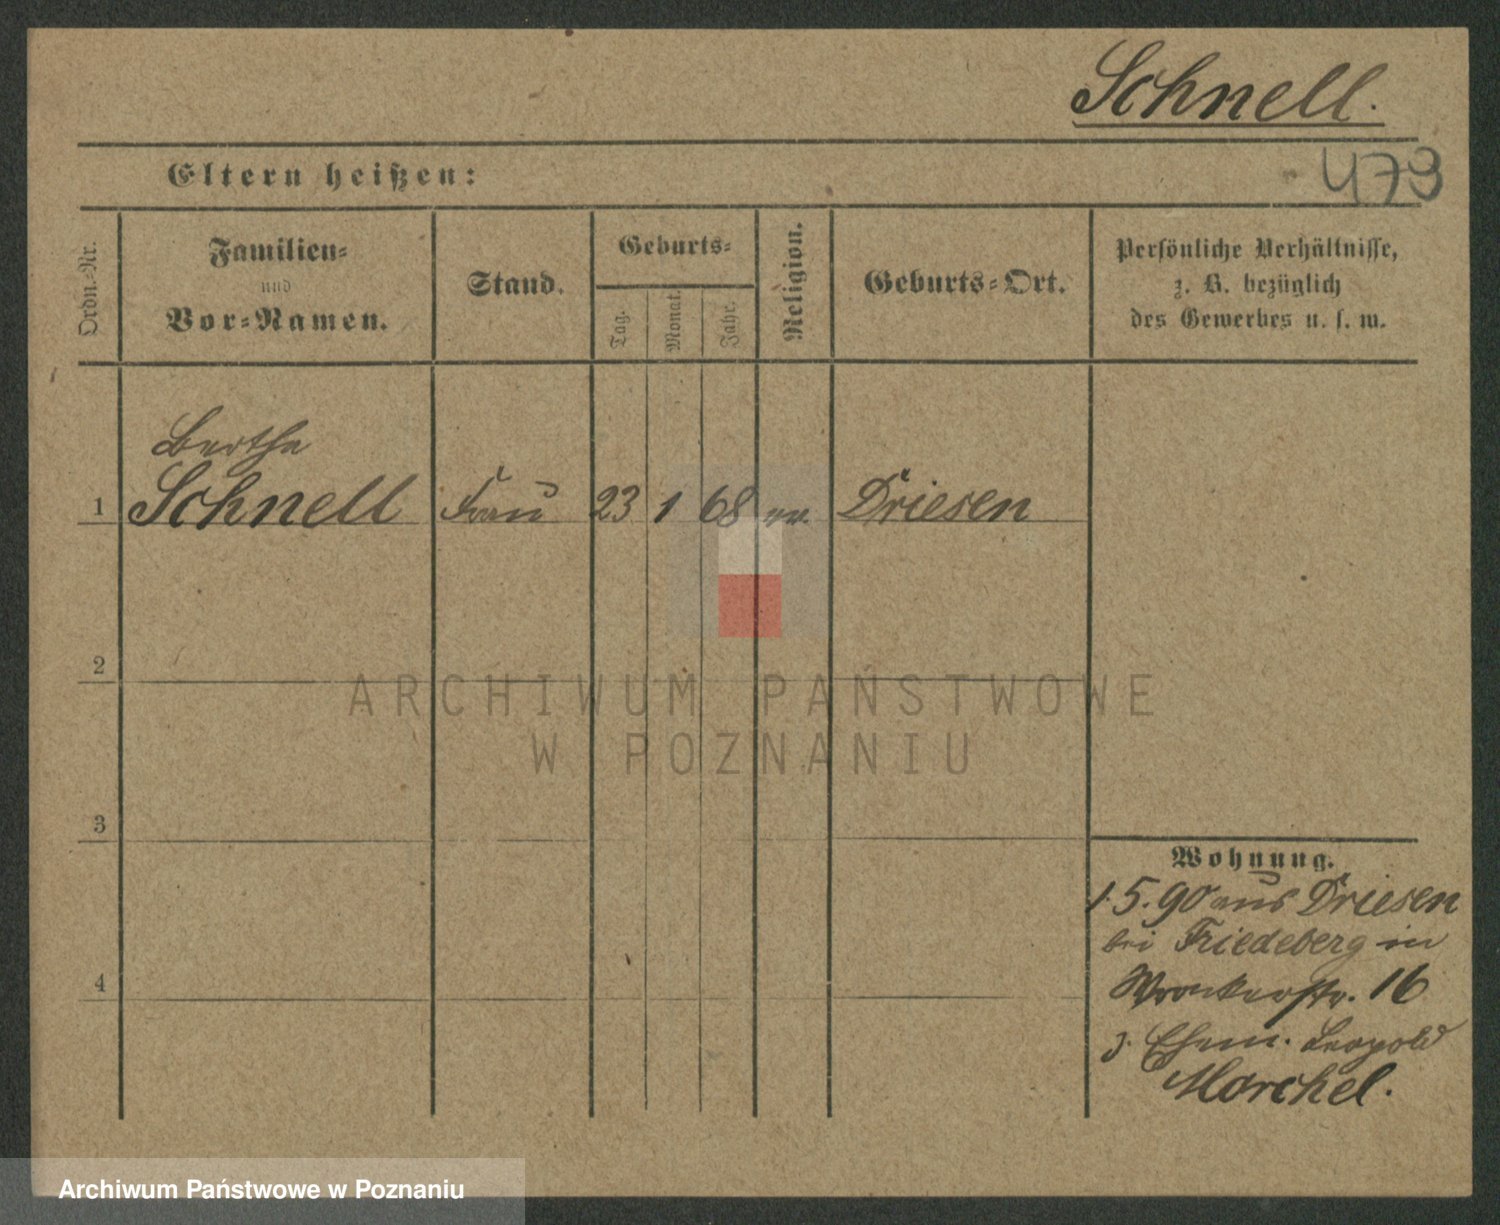 Schnell.
473
Eltern heißen:
Ordn.-Nr.
Familien-
und
Vor-Namen.
Stand.
Geburts-
Tag.
Monat.
Jahr.
Religion.
Geburts-Ort.
Persönliche Verhältnisse,
z. B. bezüglich
des Gewerbes u. s. w.
Bertha
1 Schnell Frau 23 1 68 ev. Driesen
2
ARCHIWUM PAŃSTWOWE
W POZNANIU
3
Wohnung.
1.5.90 aus Driesen
bei Friedeberg in
Wronkerstr. 16
z. Ehem. Leopold
Marchel.
4
Archiwum Państwowe w Poznaniu